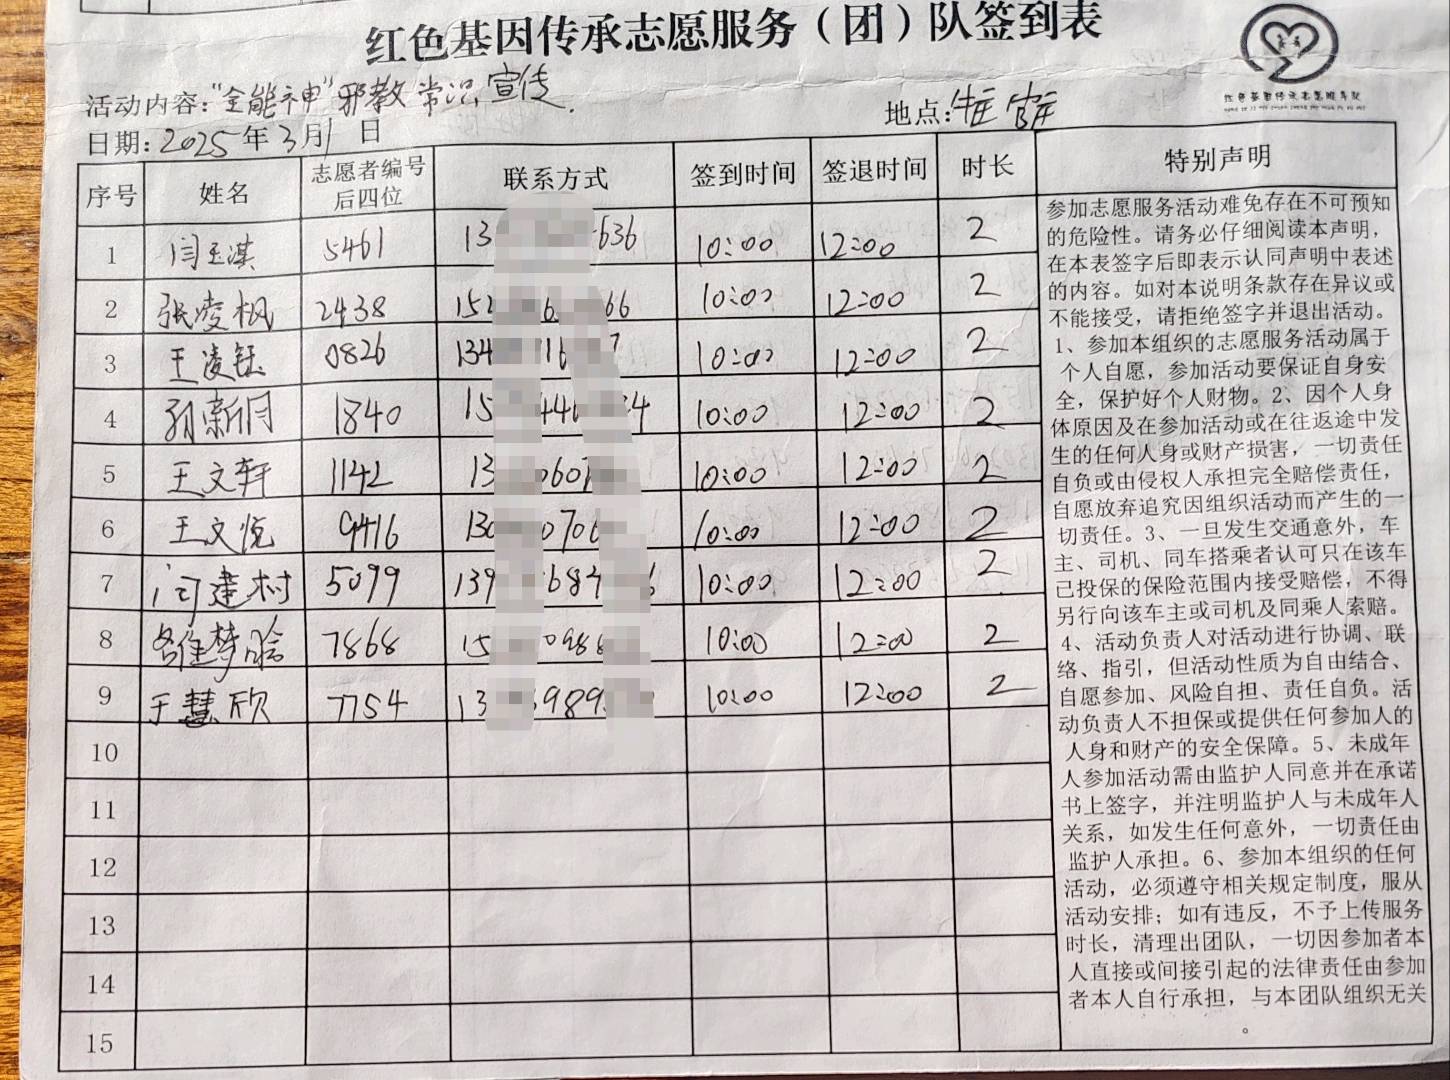 红色基因传承志愿服务（团）队签到表
红色基因传承志愿服务队
活动内容：“全能神”邪教常识宣传.
地点：
日期：2025年3月1日
序号 姓名 志愿者编号后四位 联系方式 签到时间 签退时间 时长 特别声明
1 闫玉淇 5461 13 636 10:00 12:00 2
2 张凌枫 2438 152 6 66 10:00 12:00 2
3 王凌钰 0826 134 16 7 10:00 12:00 2
4 孙新月 1840 15 446 34 10:00 12:00 2
5 王文轩 1142 13 060 10:00 12:00 2
6 王文悦 9416 130 070 10:00 12:00 2
7 闫建树 5099 139 684 6 10:00 12:00 2
8 梦晗 7868 15 098 10:00 12:00 2
9 于慧欣 7754 13 989 10:00 12:00 2
10
11
12
13
14
15
参加志愿服务活动难免存在不可预知
的危险性。请务必仔细阅读本声明，
在本表签字后即表示认同声明中表述
的内容。如对本说明条款存在异议或
不能接受，请拒绝签字并退出活动。
1、参加本组织的志愿服务活动属于
个人自愿，参加活动要保证自身安
全，保护好个人财物。2、因个人身
体原因及在参加活动或在往返途中发
生的任何人身或财产损害，一切责任
自负或由侵权人承担完全赔偿责任，
自愿放弃追究因组织活动而产生的一
切责任。3、一旦发生交通意外，车
主、司机、同车搭乘者认可只在该车
已投保的保险范围内接受赔偿，不得
另行向该车主或司机及同乘人索赔。
4、活动负责人对活动进行协调、联
络、指引，但活动性质为自由结合、
自愿参加、风险自担、责任自负。活
动负责人不担保或提供任何参加人的
人身和财产的安全保障。5、未成年
人参加活动需由监护人同意并在承诺
书上签字，并注明监护人与未成年人
关系，如发生任何意外，一切责任由
监护人承担。6、参加本组织的任何
活动，必须遵守相关规定制度，服从
活动安排；如有违反，不予上传服务
时长，清理出团队，一切因参加者本
人直接或间接引起的法律责任由参加
者本人自行承担，与本团队组织无关
。